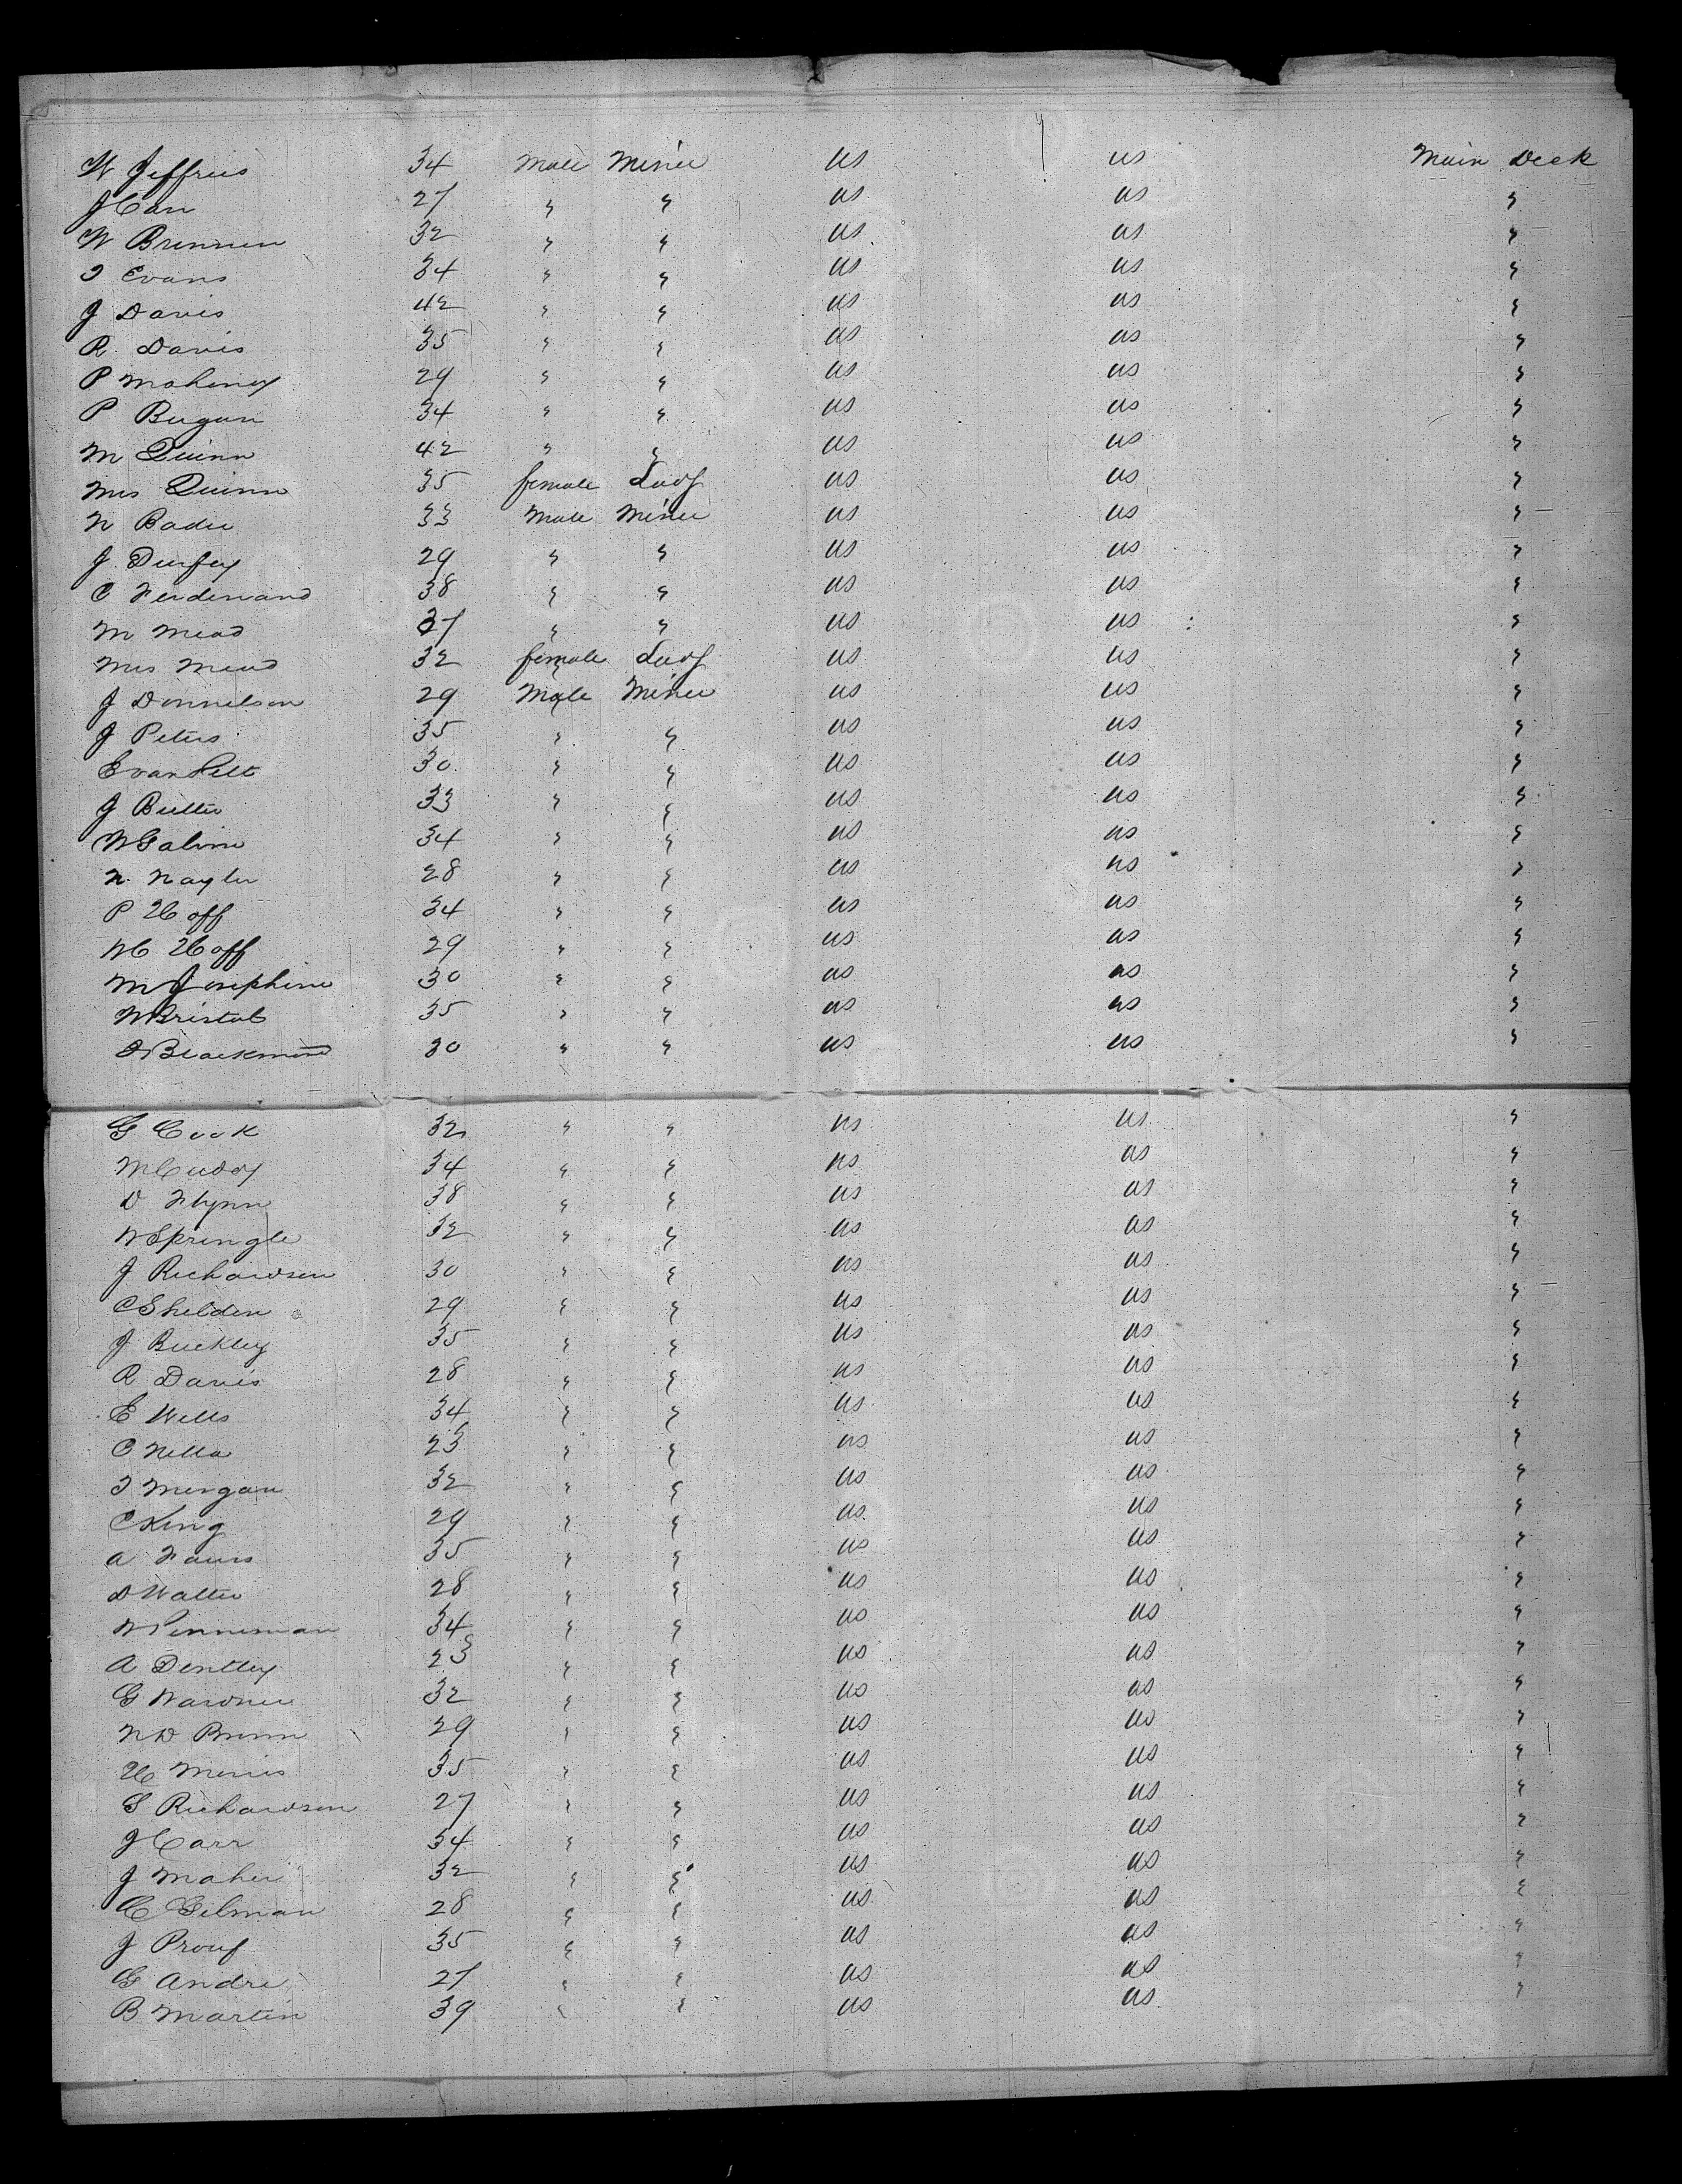 W Jeffries 34 Male Miner US US Main Deck
J Carr 27 " " US US "
W Brennen 32 " " US US "
T Evans 34 " " US US "
J Davis 42 " " US US "
R. Davis 35 " " US US "
P Mahoney 29 " " US US "
P Bugan 34 " " US US "
M Quinn 42 " " US US "
Mrs Quinn 35 female Lady US US "
N Bader 33 Male Miner US US "
J Durfey 29 " " US US "
C Ferdenand 38 " " US US "
M Mead 37 " " US US "
Mrs Mead 32 female Lady US US "
J Donnelson 29 Male Miner US US "
J Peters 35 " " US US "
E vanPelt 30 " " US US "
J Butler 33 " " US US "
W Galvin 34 " " US US "
N. Naylor 28 " " US US "
P Hoff 34 " " US US "
WC Hoff 29 " " US US "
M Josephine 30 " " US US "
W Bristol 35 " " US US "
J Blackmond 30 " " US US "
G Cook 32 " " US US "
M Cuddy 34 " " US US "
D Flynn 38 " " US US "
W Springle 32 " " US US "
J Richardson 30 " " US US "
C Shelden 29 " " US US "
J Buckley 35 " " US US "
R Davis 28 " " US US "
E Wells 34 " " US US "
C Nella 23 " " US US "
T Morgan 32 " " US US "
C King 29 " " US US "
A 35 " " US US "
D Walter 28 " " US US "
W Penneman 34 " " US US "
A Dentley 23 " " US US "
G Wardner 32 " " US US "
N D Brown 29 " " US US "
H Morris 35 " " US US "
S Richardson 27 " " US US "
J Carr 34 " " US US "
J Maher 32 " " US US "
C Gilman 28 " " US US "
J Prouf 35 " " US US "
G Andre 27 " " US US "
B Martin 39 " " US US "